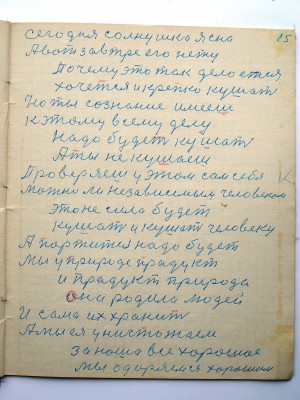 15
сегодня солнушка ясна
Авот завтре его нету
Почему это так дело ется
хочется и крепко кушат
Но ты сознание имееш
кэтому всему делу
Надо будет кушат
А ты не кушаеш
Проверяеш у этом сам себя
можно ли независимым человеком
это не село будет
кушат и кушат человеку
А портится надо будет
Мы у природе прадукт
и прадукт природы
она родила людей
И сама их хранит
Амы ея уништожаем
за наша все хорошое
мы одоряемся хорошим